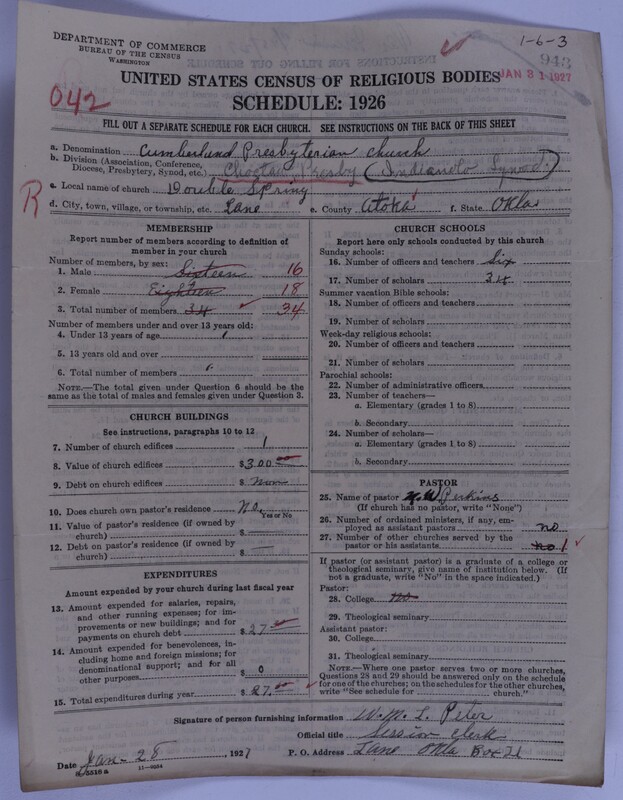 DEPARTMENT OF COMMERCE
BUREAU OF THE CENSUS
WASHINGTON
1-6-3
943
JAN 31 1927
UNITED STATES CENSUS OF RELIGIOUS BODIES
SCHEDULE: 1926
042
FILL OUT A SEPARATE SCHEDULE FOR EACH CHURCH. SEE INSTRUCTIONS ON THE BACK OF THIS SHEET
a. Denomination Cumberland Presbyterian church
b. Division (Association, Conference, Diocese, Presbytery, Synod, etc.) Choctaw Presby (Indianola Synod)
R
c. Local name of church Double Spring
d. City, town, village, or township, etc. Lane e. County Atoka f. State Okla
MEMBERSHIP
Report number of members according to definition of member in your church
Number of members, by sex:
1. Male Sixteen 16
2. Female Eighteen 18
3. Total number of members 34 34
Number of members under and over 13 years old:
4. Under 13 years of age
5. 13 years old and over
6. Total number of members
NOTE.—The total given under Question 6 should be the same as the total of males and females given under Question 3.
CHURCH BUILDINGS
See instructions, paragraphs 10 to 12
7. Number of church edifices 1
8. Value of church edifices $300
9. Debt on church edifices $ non
10. Does church own pastor's residence No.
Yes or No
11. Value of pastor's residence (if owned by church) $
12. Debt on pastor's residence (if owned by church) $
EXPENDITURES
Amount expended by your church during last fiscal year
13. Amount expended for salaries, repairs, and other running expenses; for improvements or new buildings; and for payments on church debt $27
14. Amount expended for benevolences, including home and foreign missions; for denominational support; and for all other purposes $ 0
15. Total expenditures during year $27.00
CHURCH SCHOOLS
Report here only schools conducted by this church
Sunday schools:
16. Number of officers and teachers Six
17. Number of scholars 34
Summer vacation Bible schools:
18. Number of officers and teachers
19. Number of scholars
Week-day religious schools:
20. Number of officers and teachers
21. Number of scholars
Parochial schools:
22. Number of administrative officers
23. Number of teachers—
a. Elementary (grades 1 to 8)
b. Secondary
24. Number of scholars—
a. Elementary (grades 1 to 8)
b. Secondary
PASTOR
25. Name of pastor N. W. Perkins
(If church has no pastor, write "None")
26. Number of ordained ministers, if any, employed as assistant pastors no
27. Number of other churches served by the pastor or his assistants no 1
If pastor (or assistant pastor) is a graduate of a college or theological seminary, give name of institution below. (If not a graduate, write "No" in the space indicated.)
Pastor:
28. College No
29. Theological seminary
Assistant pastor:
30. College
31. Theological seminary
NOTE.—Where one pastor serves two or more churches, Questions 28 and 29 should be answered only on the schedule for one of the churches; on the schedules for the other churches, write "See schedule for church."
Signature of person furnishing information W. M. L. Peter
Official title Session Clerk
Date Jan- 28, 1927 P. O. Address Lane Okla Box 21
8-5510 a 11-9664